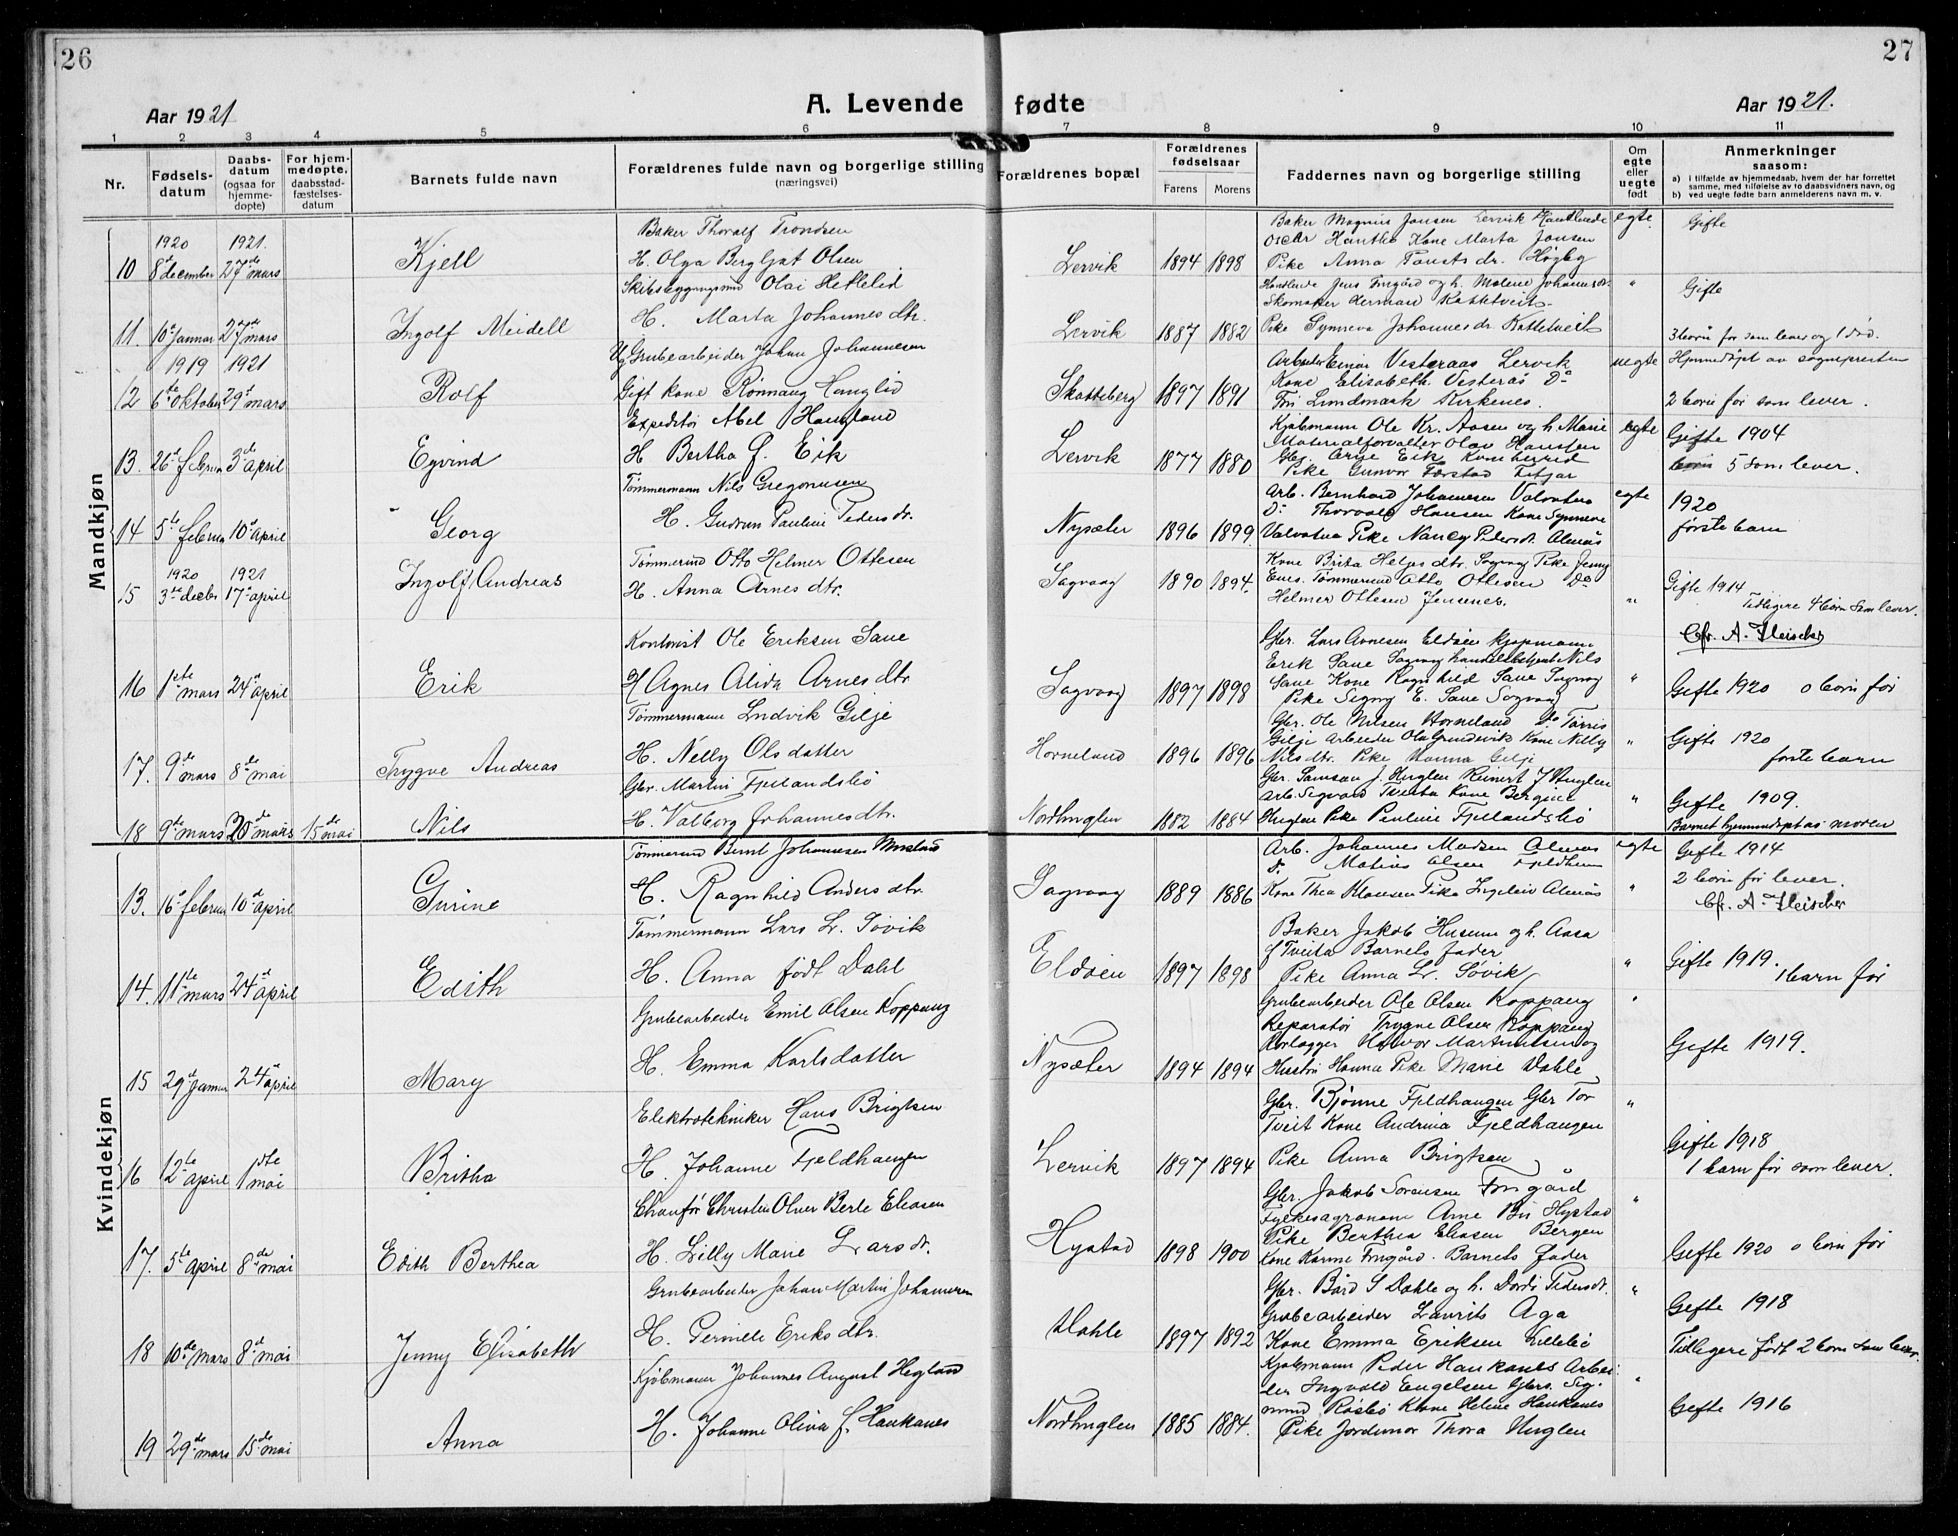 26
27
Aar 1921
A. Levende fødte
Aar 1921.
1 2 3 4 5 6 7 8 9 10 11
Nr.
Fødsels-
datum
Daabs-
datum
(ogsaa for
hjemme-
døpte)
For hjem-
medøpte,
daabsstad-
fæstelses-
datum
Barnets fulde navn
Forældrenes fulde navn og borgerlige stilling
(næringsvei)
Forældrenes bopæl
Forældrenes
fødselsaar
Farens Morens
Faddernes navn og borgerlige stilling
Om
egte
eller
uegte
født
Anmerkninger
saasom:
a) i tilfælde av hjemmedaab, hvem der har forrettet
samme, med tilføielse av to daabsvidners navn, og
b) ved uegte fødte barn anmelderens navn m. v.
Mandkjøn
1920 1921.
10 8de december 27de mars
Kjell
Baker Thoralf Trondsen
H. Olga Bergljot Olsen
Lervik 1894 1898
Baker Magnus Jansen Lervik Handlende
Oscar Kone Marta Jansen
Pike Anna
egte.
Gifte
11. 10de januar 27de mars
Ingolf Meidell
Olai Hettleid
H. Marta Johannesdtr.
Lervik 1887 1882
og h. Malene Johannesdtr.
Skomaker Herman Kattetveit
Pike Synneva Johannesdr. Kattetveit
"
Gifte
3 born før som lever og 1 død.
1919 1921
12 6te oktober 29de mars
Rolf
Ug Grubearbeider Johan Johannesen
Gift kone Rønnaug Hauglid
Skatteberg 1897 1891
Arbeider Einar Vesteraas Lervik
Kone Elisabeth Vesterås Do
Lundmark Kirkenes.
uegte
Hjemmedøpt av sognepresten
2 born før som lever.
13. 26de februar 3de april
Eyvind
Expeditør Abel Haugland
H Bertha f. Eik
Lervik 1877 1880
Kjøbmann Ole Kr. Aasen og h Marie
Materialforvalter Olav Hansten
Gbr. Arne Eik
Pike Gunvor Fitjar
egte
Gifte 1904
5 som lever.
14 5te februar 10de april
Georg
Tømmermann Nils Gregoriusen
H. Gudrun Pauline Pedersdr.
Nysæter 1896 1899
Arb. Bernhard Johannesen Valvatna
Do Thorvald Hansen Kone Synneve
Valvatna Pike Nancy Pedersdr. Almås
egte
1920
første barn
1920 1921
15 3de decbr 17de april
Ingolf Andreas
Tømmermd Otto Helmer Ottesen
H. Anna Arnesdtr.
Sagvaag 1890 1894.
Kone Brita Helgesdtr. Sagvaag Pike Jenny
Enes. Tømmermd Otto Ottesen Do
Helmer Ottesen Jensenes.
"
Gifte 1914
Tidligere 4 born som lever.
Cfr. A. Fleischer
16 1ste mars 24de april
Erik
Kontorist Ole Eriksen Sane
H Agnes Alida Arnesdtr
Sagvaag 1897 1898
Gbr. Lars Arnesen Eldøen Kjøpmann
Erik Sane Sagvaag handelsbetjent Nils
Sane Kone Ragnhild Sane Sagvaag
Pike Signy E. Sane Sagvaag
"
Gifte 1920 0 born før
17. 9de mars 8de mai
Trygve Andreas
Tømmermann Ludvik Gilje
H. Nelly Olsdatter
Horneland 1896 1896
Gbr. Ole Nilsen Horneland Do Tørris
Gilje arbeider Ola Grundevik Kone Nilly
Nilsdtr. Pike Hanna Gilje
"
Gifte 1920
første barn
18 9de mars 20de mars 15de mai
Nils
Gbr. Martin Fjelandsbø
H. Valborg Johannesdtr.
Nordhuglen 1882 1884
Gbr. Samson J. Huglen Reinert J Huglen
Arb. Sigvard Tveita Kone Bergine
Huglen Pike Pauline Fjelandsbø
"
Gifte 1909.
Barnet hjemmedøpt as moren
Kvindekjøn
13. 16de februar 10de april
Gurine
Tømmermd Bernt Johannesen
H. Ragnhild Andersdtr.
Sagvaag 1889 1886
Arb. Johannes Madsen Almås
Do Matias Olsen Fjeldheim
Kone Thea Klausen Pike Ingeleiv Almås
egte
"
Gifte 1914
2 born før lever.
Cfr. A. Fleischer
14. 11te mars 24de april
Edith
Tømmermann Lars L. Søvik
H. Anna født Dahl
Eldøen 1897 1898
Baker Jakob Husum og h. Aasa
f Tveita Barnets fader
Pike Anna L. Søvik
"
Gifte 1919.
1 barn før
15 29de januar 24de april
Mary
Grubearbeider Emil Olsen Koppang
H. Emma Karlsdatter
Nysæter 1894 1894
Grubearbeider Ole Olsen Koppang
Reparatør Trygve Olsen Koppang
Rørlægger Halvor Martinusen og
Hustru Hanna Pike Marie Dahle
"
Gifte 1919.
16 12te april 1ste mai
Britha
Elektrotekniker Hans Brigtsen
H. Johanne Fjeldhaugen
Lervik 1897 1894
Gbr. Bjønne Fjeldhaugen Gbr Tor
Tveit Kone Andrina Fjeldhaugen
Pike Anna Brigtsen
"
Gifte 1918
1 barn før som lever.
17. 5te april 8de mai
Edith Berthea
Chaufør Christen Oluer Berle Eliasen
H. Lilly Marie Larsdr.
Hystad 1898 1900
Gbr. Jakob Sørensen Frugård
Fylkesagronom Arne Bu Hystad
Pike Berthea Eliasen Bergen
Kone Karine Frugård. Barnets fader
"
Gifte 1920 0 born før
18 10de mars 8de mai
Jenny Elisabeth
Grubearbeider Johan Martin Johannesen
H. Pernille Eriksdtr.
Dahle 1897 1892
Gbr. Bård S Dahle og h. Dordi Pedersdt.
Grubearbeider Laurits Aga
Kone Emma Eriksen Lillebø
"
Gifte 1918
Tidligere født 2 born som lever.
19 29de mars 15de mai
Anna
Kjøbmann Johannes August Hegland
H. Johanne Oliva f. Haukanes
Nordhuglen 1885 1884.
Kjøbmann Peder Haukanes Arbei-
der Ingvald Engelsen Gbr. Sig-
mund Røsbø Kone Heline Haukanes
Pike Jordinor Thora Huglen
"
Gifte 1916